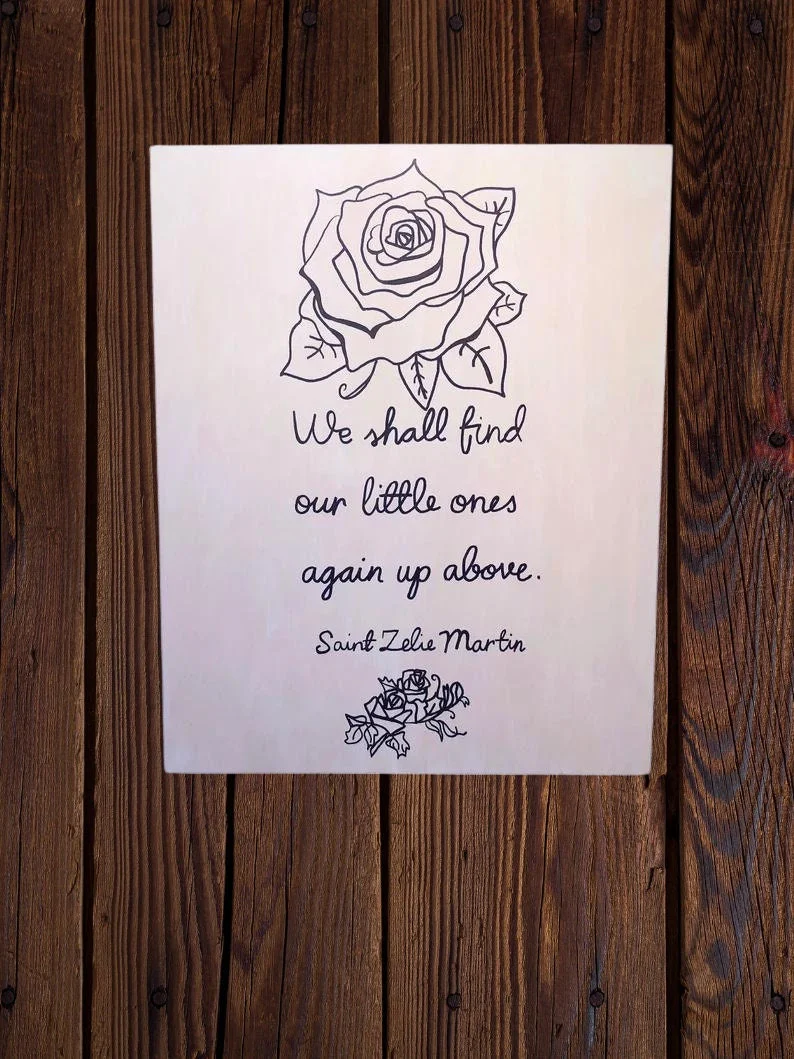 We shall find
our little ones
again up above.
Saint Zelie Martin